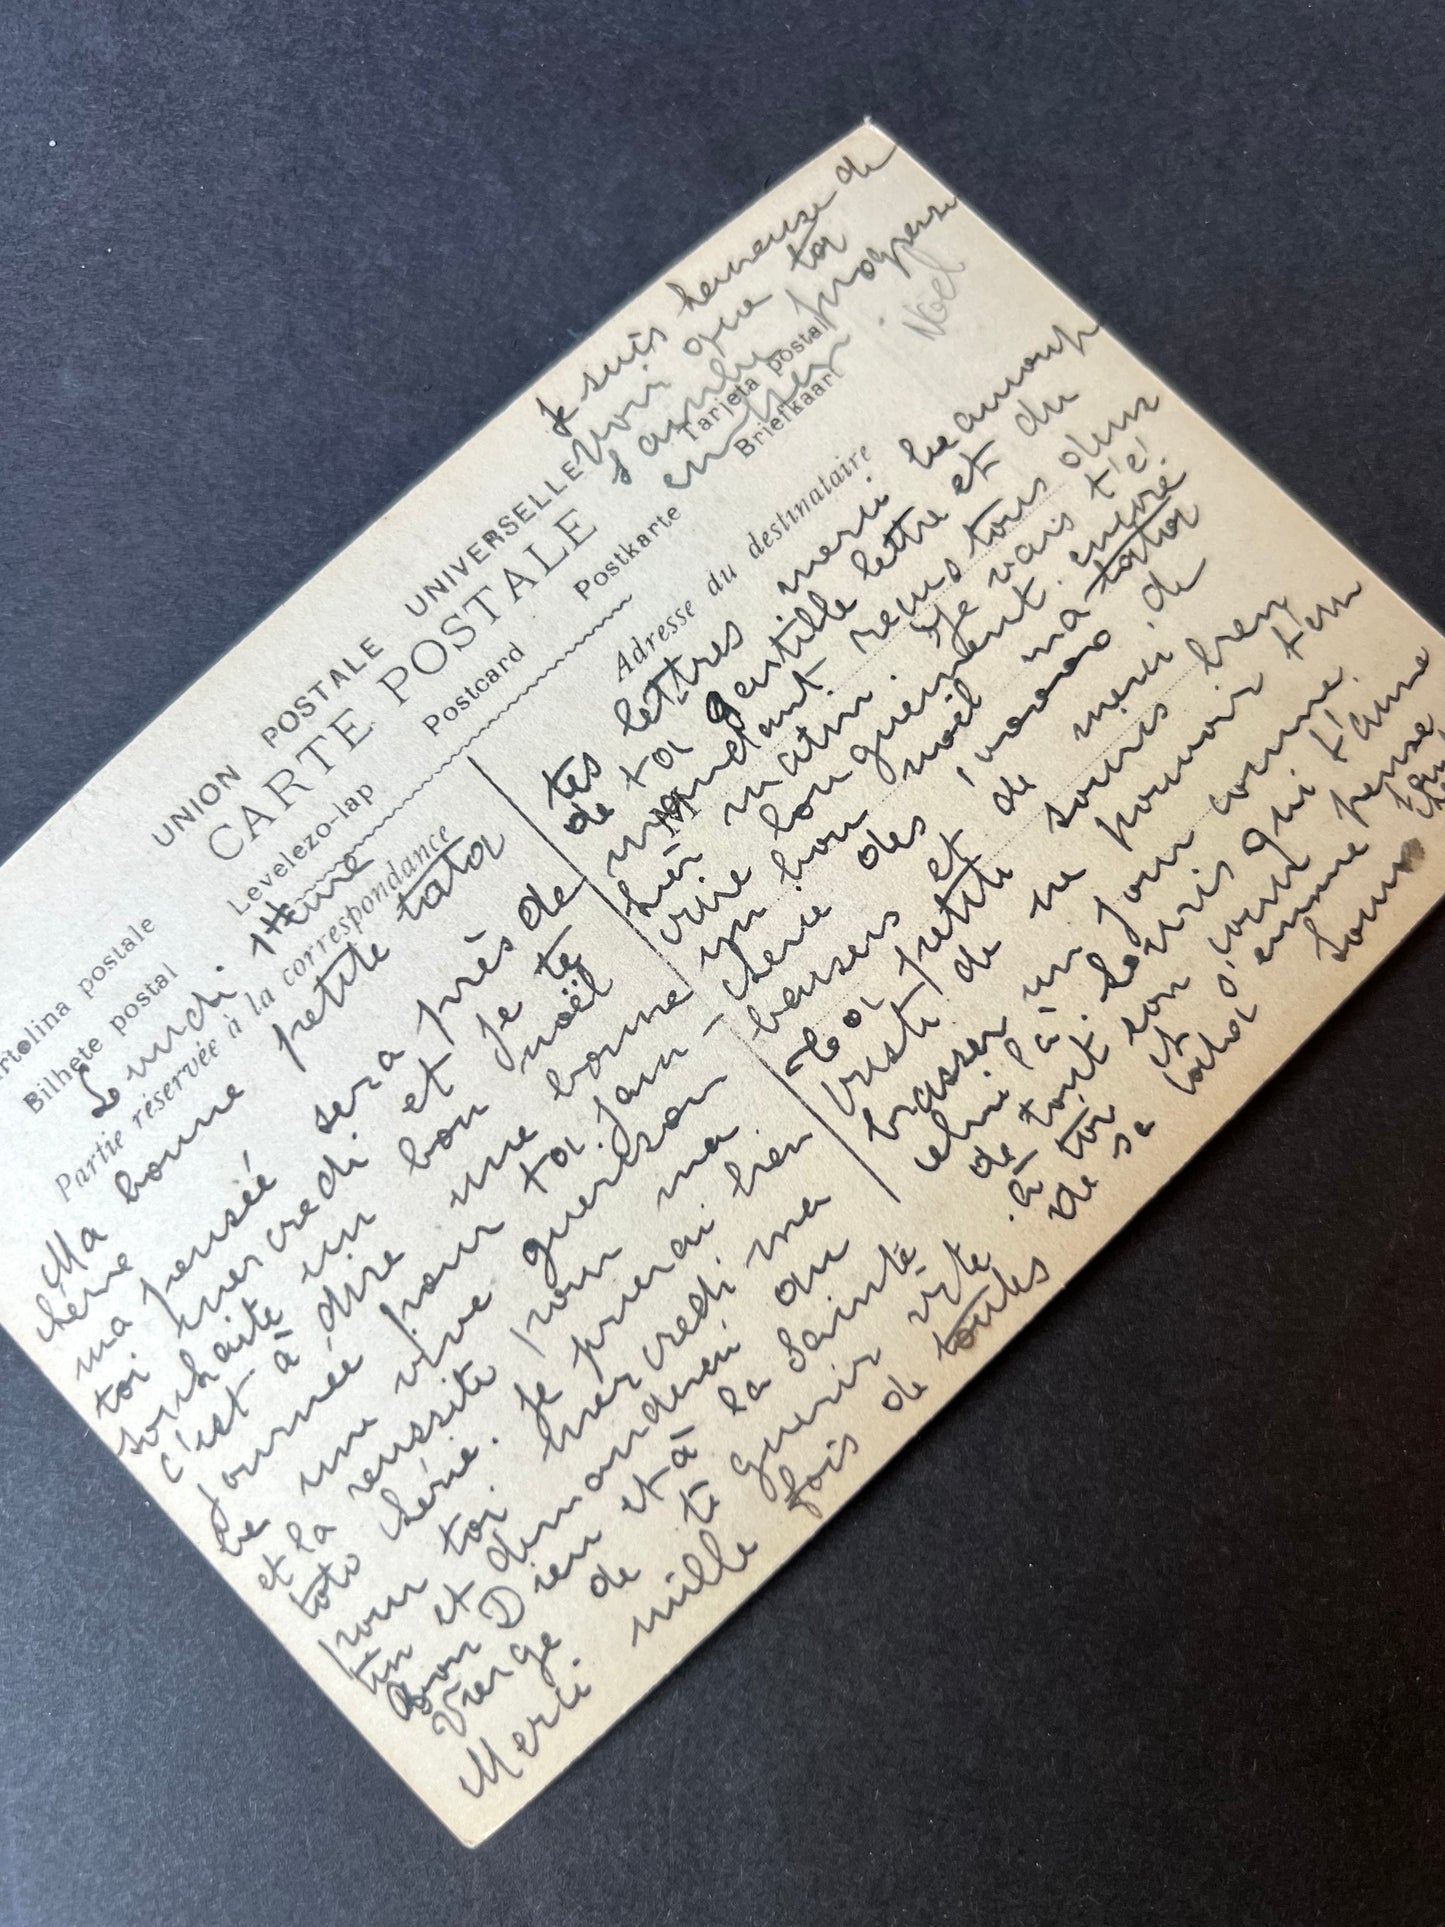 UNION POSTALE UNIVERSELLE
CARTE POSTALE
Cartolina postale
Levelezo-lap
Postcard
Postkarte
Tarjeta postal
Bilhete postal
Briefkaart
Partie réservée à la correspondance
Adresse du destinataire
Lundi.
Ma bonne petite tata
chérie
ma pensée sera près de
toi mercredi et je te
souhaite un bon noël
c'est à dire une bonne
journée pour toi. San-
té une vive guerison
et la reussite pour ma
toto chérie. Je prierai bien
pour toi mercredi ma
tin et demanderai au
Bon Dieu et à la Sainte
Vierge de te guerir vite
Merci mille fois de toutes
tes lettres merci beaucoup
de ta gentille lettre et du
mandant reçus tous deux
hier matin. Je vais t'é
crire longuement. encore
un bon noël ma tata
chérie des
baisers et de merci de
ta petite souris bien
triste de ne pouvoir t'em
brasser un jour comme
celui là. Souris qui t'aime
de tout son cœur pense
à toi et s'ennuie
de sa tata
Je suis heureuse de
voir que ta
santé
Noël